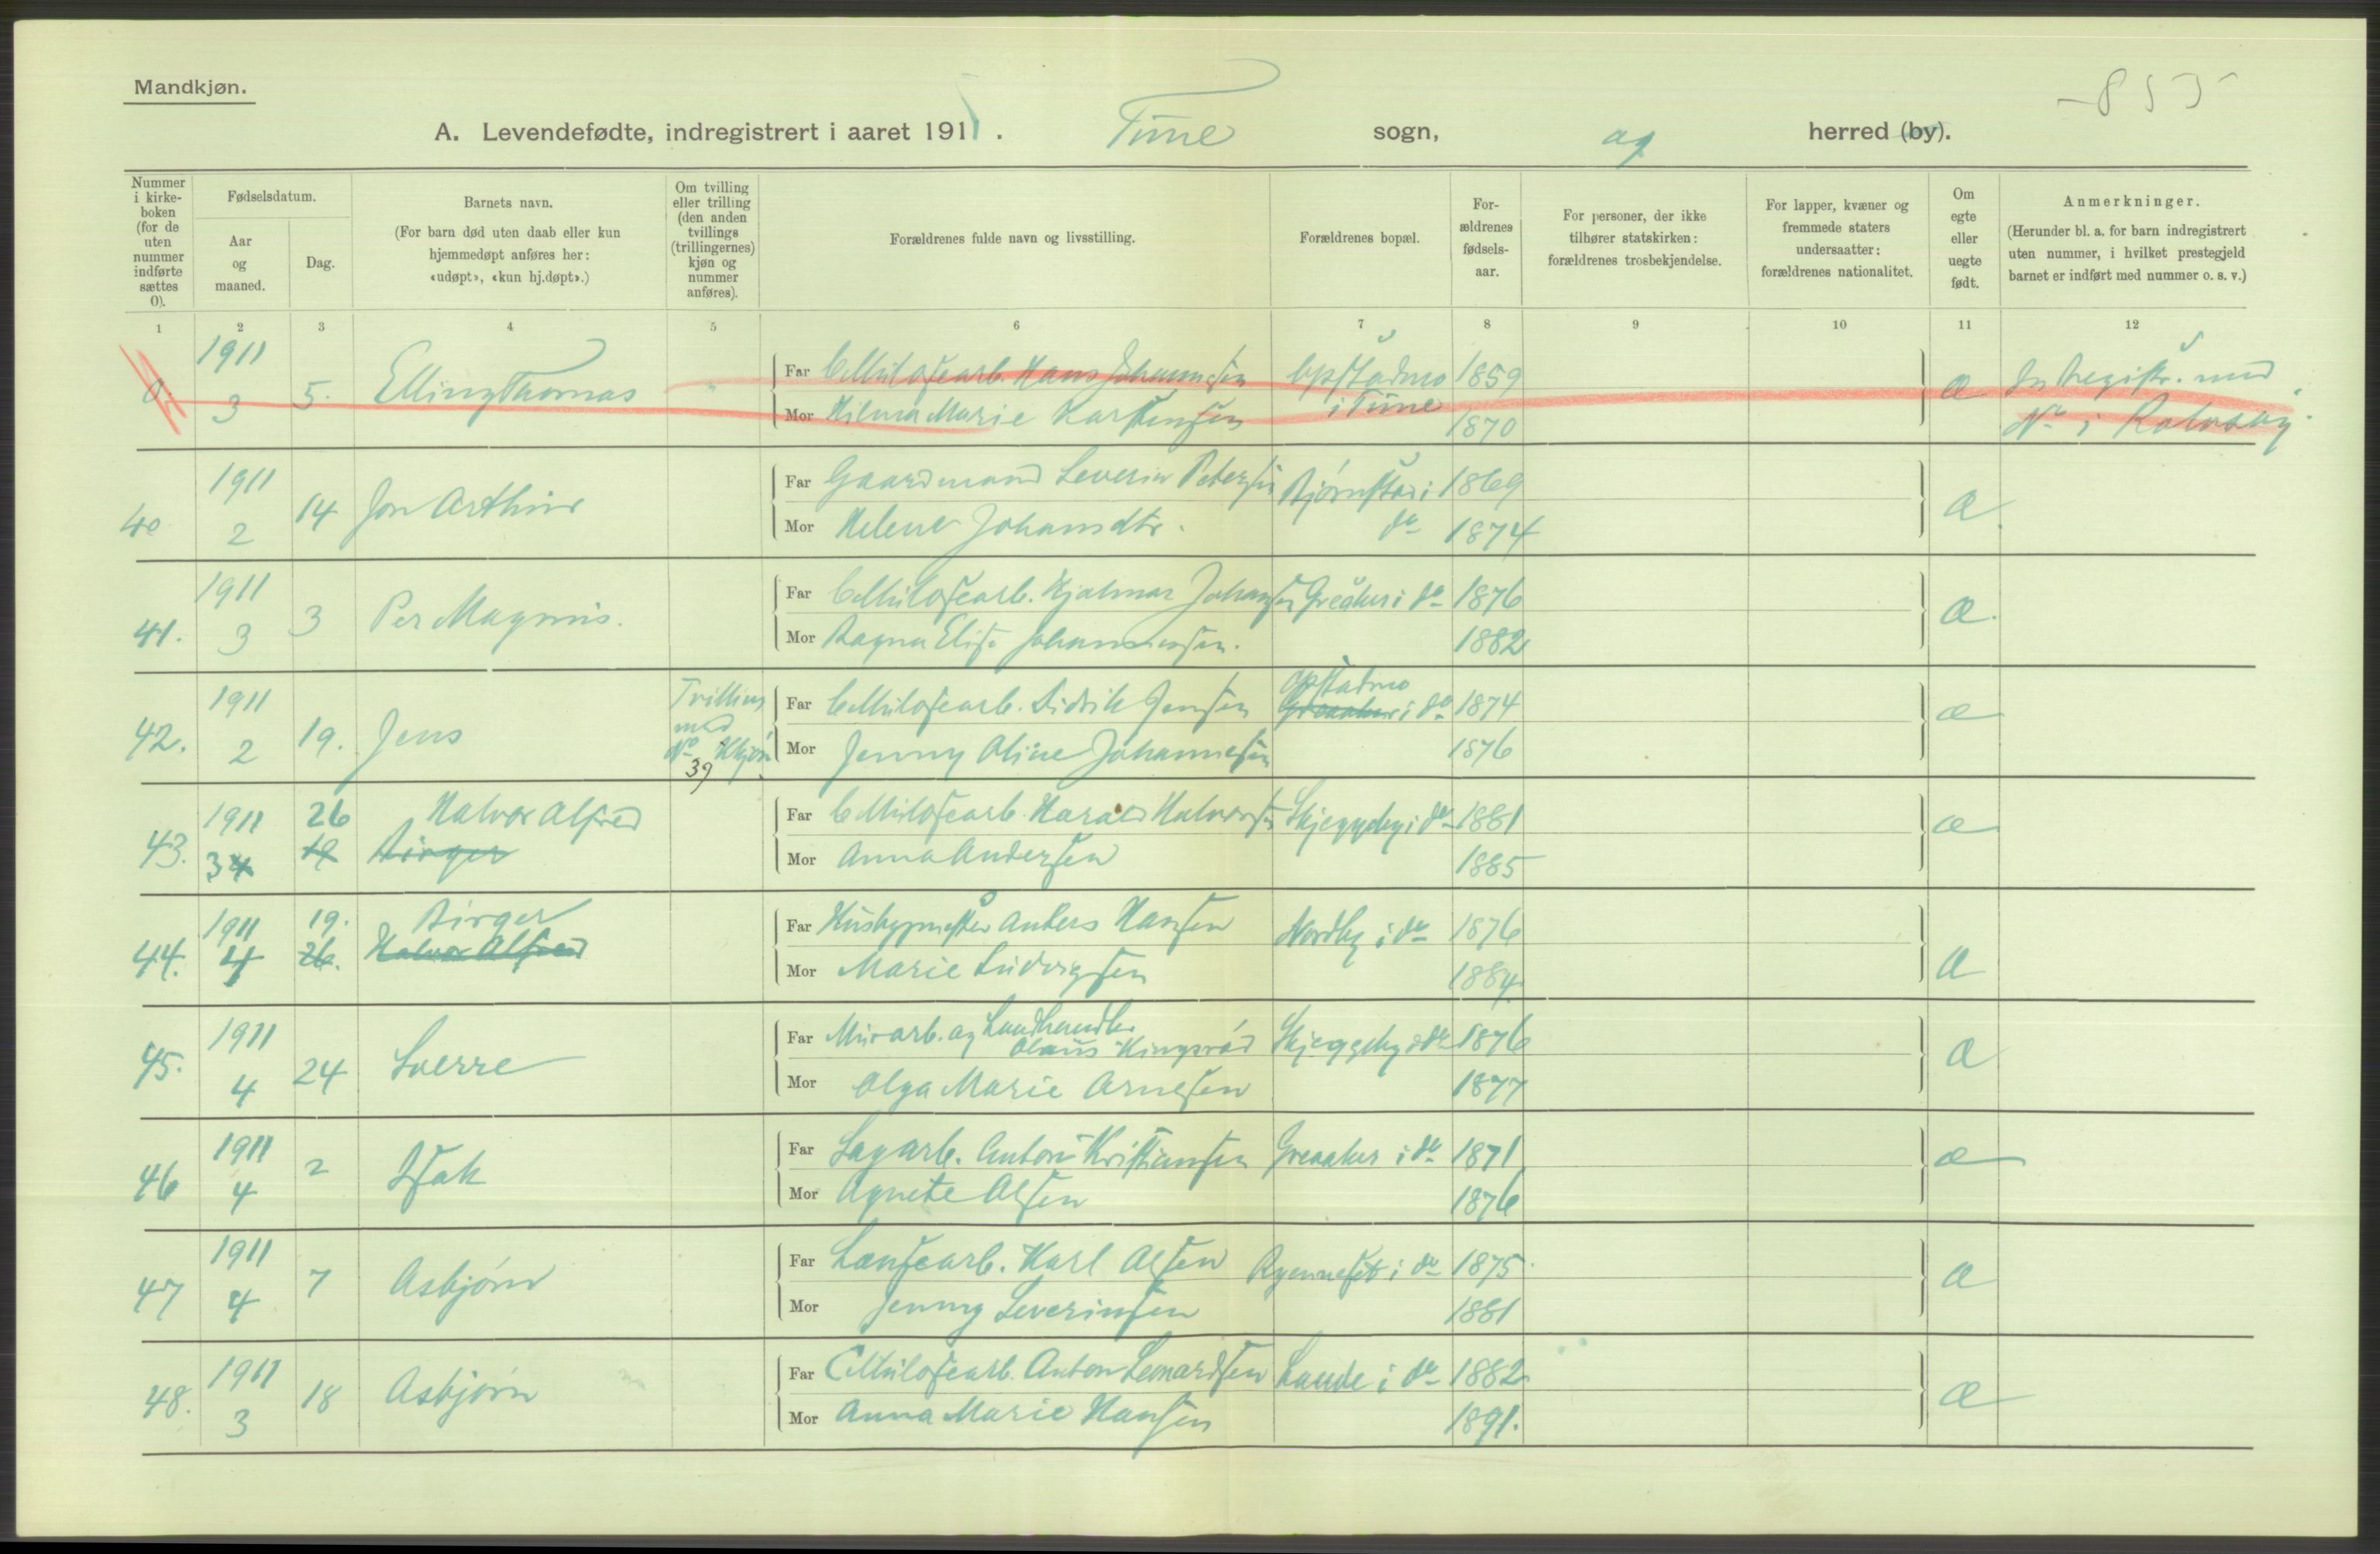 Mandkjøn.
-855
A. Levendefødte, indregistrert i aaret 1911. Tune sogn, og herred (by).
Nummer i kirkeboken (for de uten nummer indførte sættes 0).
Fødselsdatum.
Aar og maaned.
Dag.
Barnets navn.
(For barn død uten daab eller kun hjemmedøpt anføres her: «udøpt», «kun hj.døpt».)
Om tvilling eller trilling (den anden tvillings (trillingernes) kjøn og nummer anføres).
Forældrenes fulde navn og livsstilling.
Forældrenes bopæl.
Forældrenes fødselsaar.
For personer, der ikke tilhører statskirken: forældrenes trosbekjendelse.
For lapper, kvæner og fremmede staters undersaatter: forældrenes nationalitet.
Om egte eller uegte født.
Anmerkninger.
(Herunder bl. a. for barn indregistrert uten nummer, i hvilket prestegjeld barnet er indført med nummer o. s. v.)
1 2 3 4 5 6 7 8 9 10 11 12
0. 1911 3 5. Elling Thomas " Far Cellulosearb. Hans Johannesen Opstadmo 1859 Æ Indregistr. med
Mor Hilma Marie Karstensen i Tune 1870 No i Rolvsøy.
40 1911 2 14 Jon Arthur Far Gaardmand Severin Petersen Bjørnstad i 1869 Æ.
Mor Helene Johansdtr. do 1874
41. 1911 3 3 Per Magnus. Far Cellulosearb. Hjalmar Johansen Greåker i do 1876 Æ.
Mor Ragna Elise Johannessen. 1882
42. 1911 2 19. Jens Tvilling med No 39 Kkjøn Far Cellulosearb. Didrik Jensen Opstadmo Greaaker i do 1874 Æ
Mor Jenny Oline Johannesen 1876
43. 1911 3 4 26 19 Halvor Alfred Birger Far Cellulosearb. Harald Halvorsen Skjeggeby i do 1881 Æ
Mor Anna Andersen 1885
44. 1911 4 19. 26. Birger Halvor Alfred Far Husbygmester Anders Hansen Nordby i do 1876 Æ
Mor Marie Ludvigsen 1884.
45. 1911 4 24 Sverre Far Murarb. og Landhandler
Olaus Kingsrød Skjeggeby i do 1876 Æ
Mor Olga Marie Arnesen 1877
46 1911 4 2 Isak Far Sagarb. Anton Kristiansen Greaaker i do 1871 Æ
Mor Agnete Olsen 1876
47 1911 4 7 Asbjørn Far Lensearb. Karl Olsen i do 1875 Æ
Mor Jenny Severinsen 1881
48. 1911 3 18 Asbjørn Far Cellulosearb. Anton Leonardsen Lande i do 1882 Æ
Mor Anna Marie Hansen 1891.